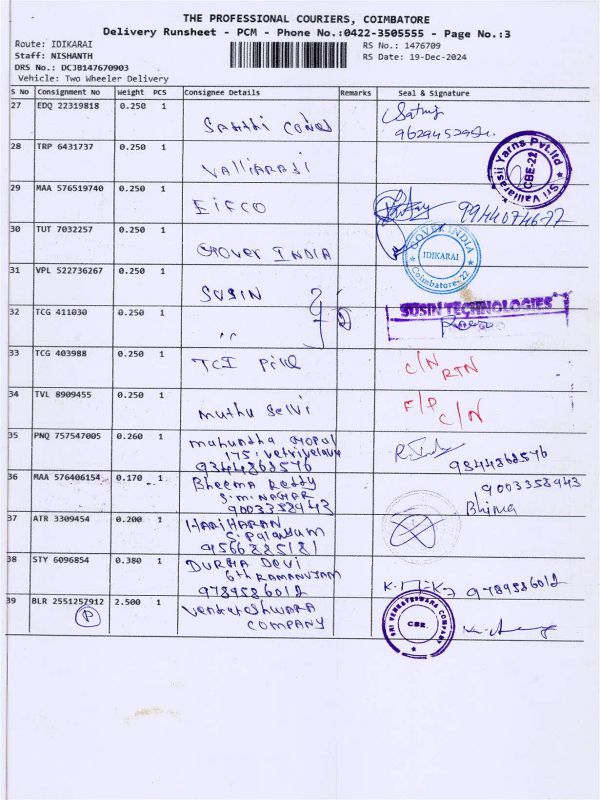 THE PROFESSIONAL COURIERS, COIMBATORE
Delivery Runsheet - PCM - Phone No.:0422-3505555 - Page No.:3
Route: IDIKARAI
RS No.: 1476709
Staff: NISHANTH
RS Date: 19-Dec-2024
DRS No.: DCJB147670903
Vehicle: Two Wheeler Delivery
S No Consignment No Weight PCS Consignee Details Remarks Seal & Signature
27 EDQ 22319818 0.250 1
28 TRP 6431737 0.250 1 VALLIARASI
Sri Valliarasii Yarns Pvt.ltd CBE-22
29 MAA 576519740 0.250 1 EIFCO
30 TUT 7032257 0.250 1 GOVER INDIA
GOVER INDIA IDIKARAI Coimbatore-22
31 VPL 522736267 0.250 1 SUSIN
SUSIN TECHNOLOGIES
32 TCG 411030 0.250 1 ,,
33 TCG 403988 0.250 1 TCI
C/N RTN
34 TVL 8909455 0.250 1 muthu selvi
F/P C/N
35 PNQ 757547005 0.260 1 mahuntha Gopal
9344868576
9344868576
36 MAA 576406154 0.170 1 Bheema Reddy
S.M. NAGAR
9003358943
9003358943
Bhima
37 ATR 3309454 0.200 1 HARIHARAN
S. Palayam
9566885181
38 STY 6096854 0.380 1 DURGA DEVI
6th RAMANUJAM
9789586012
9789586012
39 BLR 2551257912 2.500 1 Venkateshwara
COMPANY
P
SRI VENKATESHWARA COMPANY CBE.